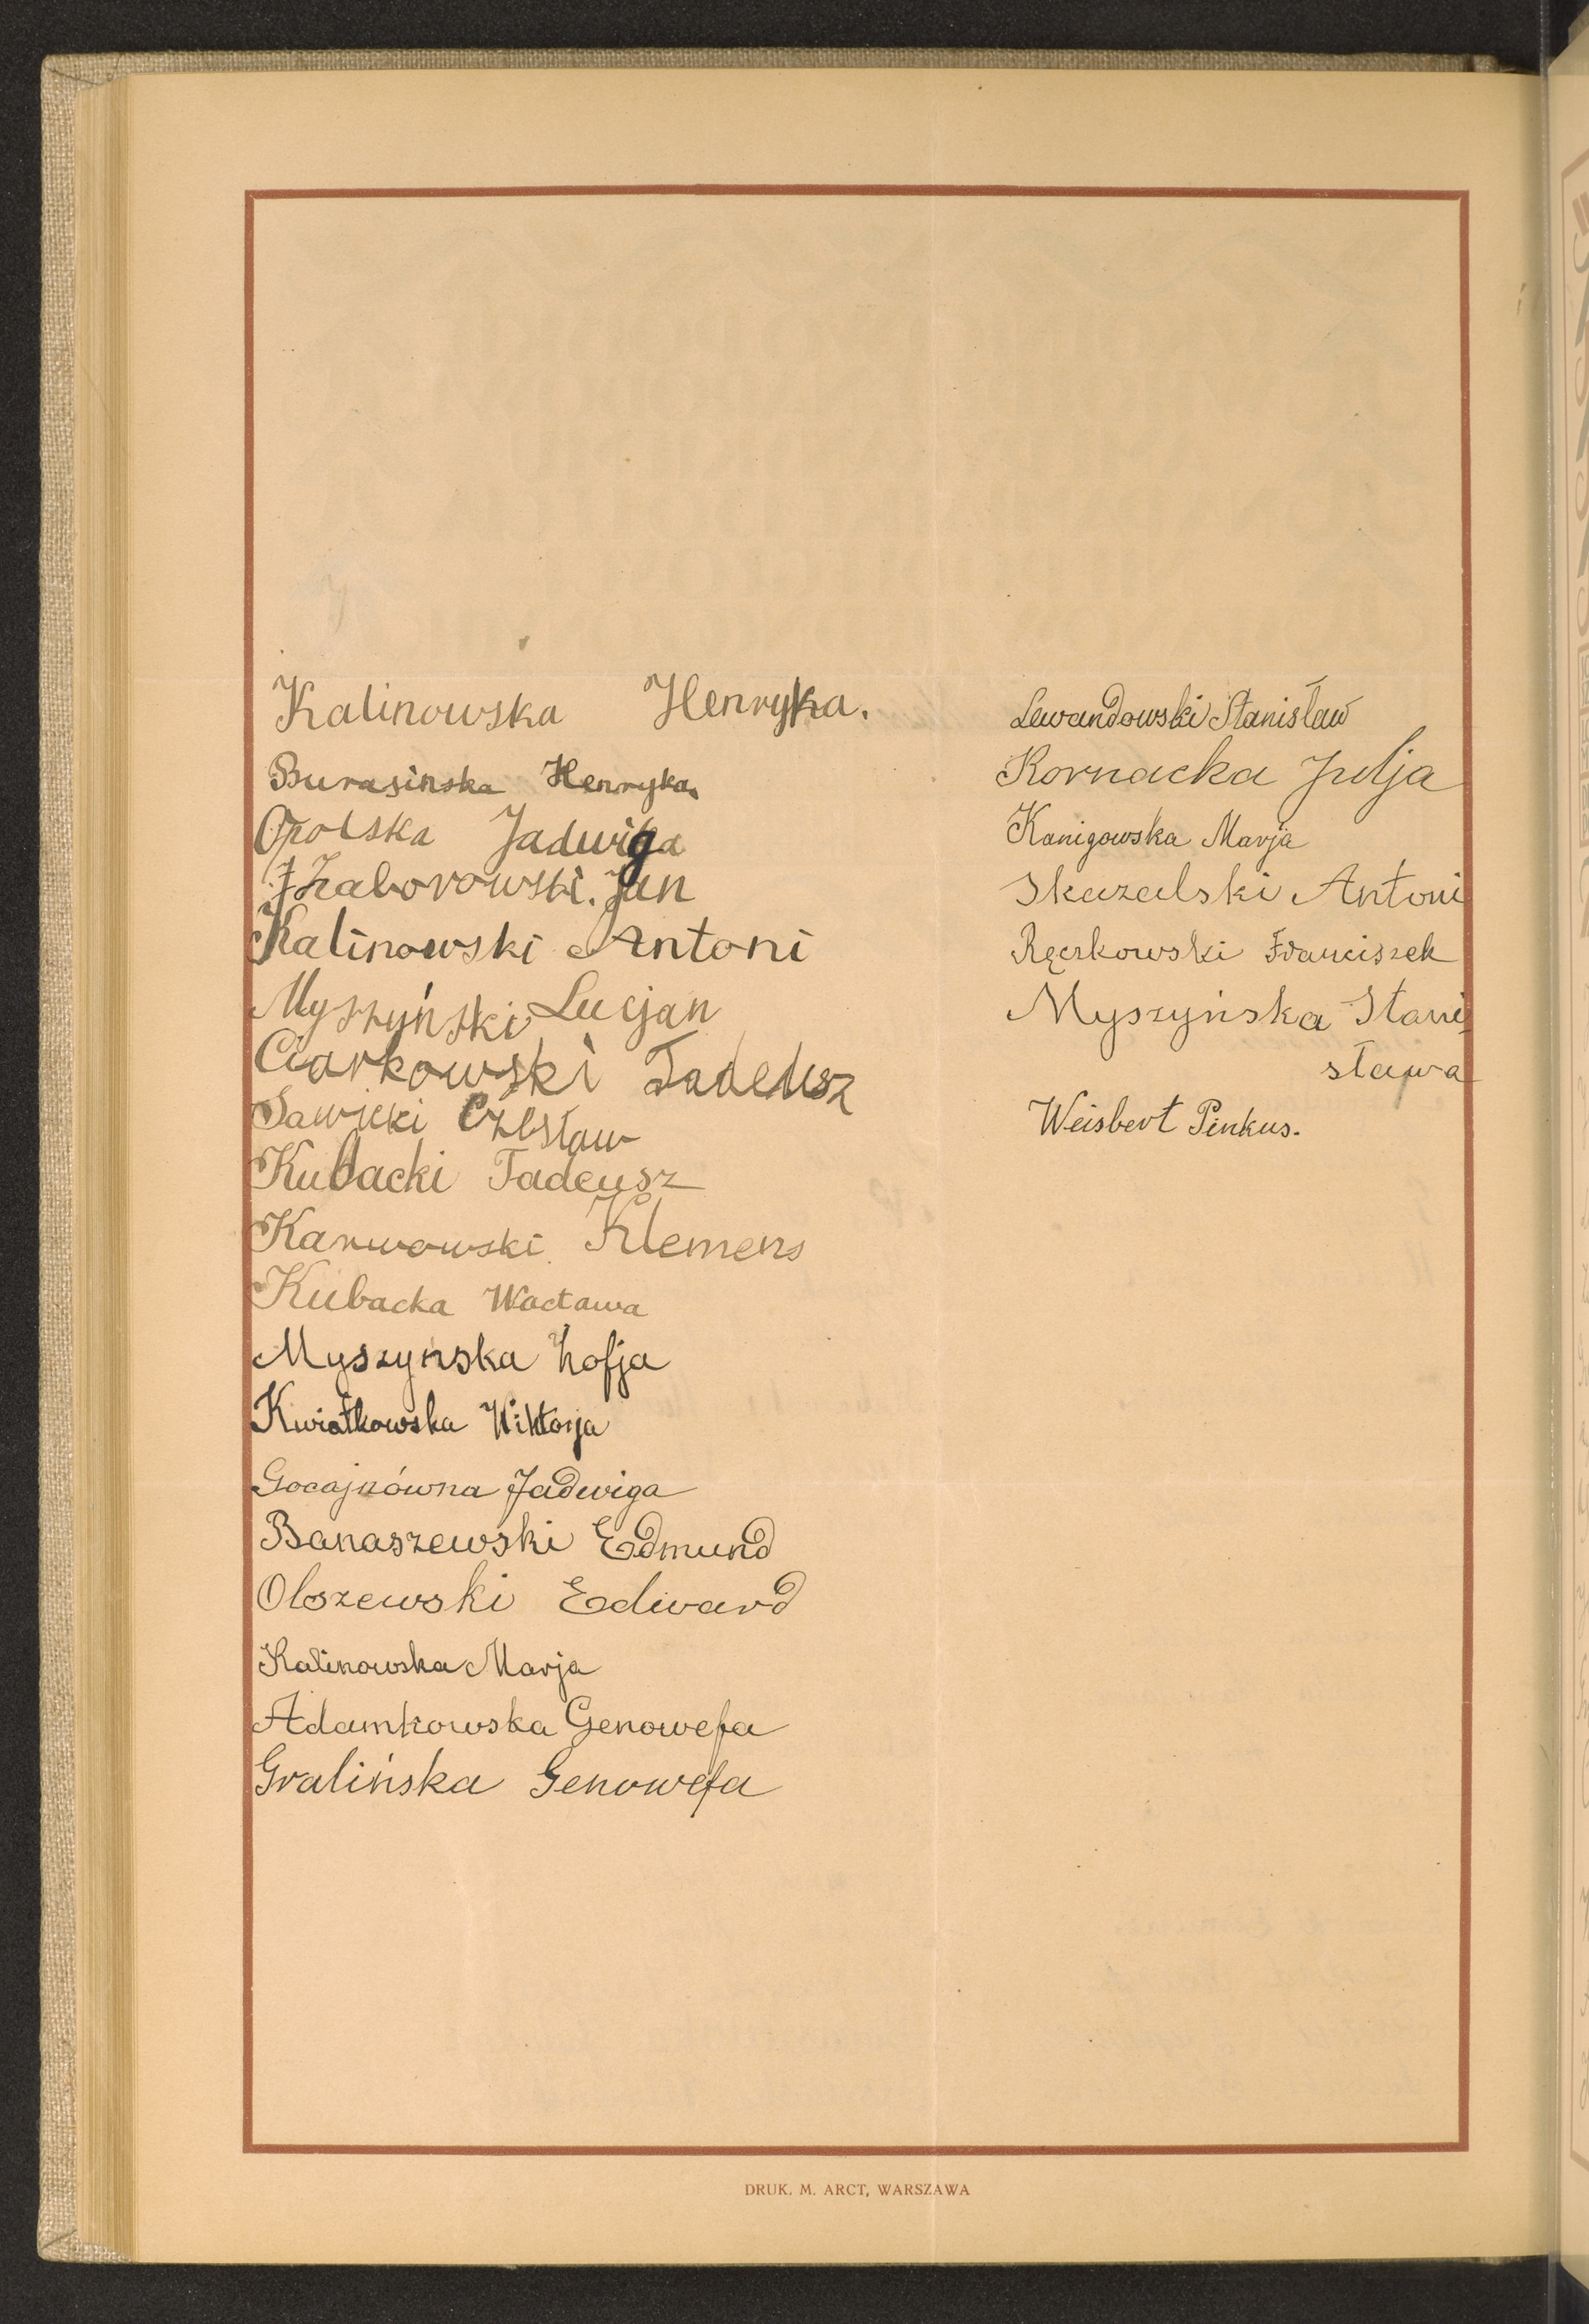 Kalinowska Henryka.
Burasinska Henryka
Opolska Jadwiga
Zaborowski. Jan
Kalinowski Antoni
Myszyński Lucjan
Ciarkowski Tadeusz
Sawicki Czesław
Kubacki Tadeusz
Karwowski Klemens
Kubacka Wacława
Myszynska Zofja
Kwiatkowska Wiktorja
Gocajnówna Jadwiga
Banaszewski Edmund
Olszewski Edward
Kalinowska Marja
Adamkowska Genowefa
Gralińska Genowefa
Lewandowski Stanisław
Kornacka Julja
Kanigowska Marja
Skazalski Antoni
Ręczkowski Franciszek
Myszyńska Stani-
sława
Weisbert Pinkus.
DRUK. M. ARCT, WARSZAWA